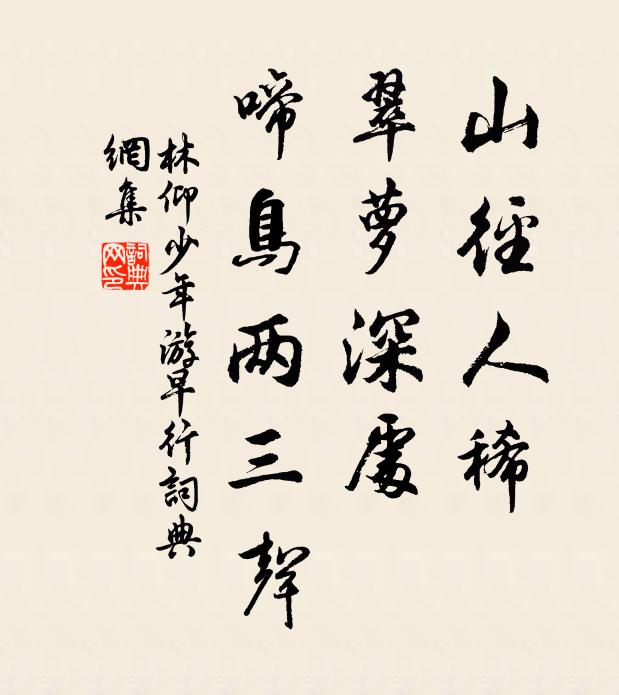 山徑人稀
翠萝深處
啼鳥两三聲
林仰少年游早行詞典
網集
詞典
网印